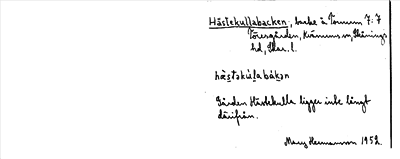 Hästekullabacken, backe å Tomum 7:7
Torsgården, Kvänums sn, Skånings
hd, Skar. l.
hàstəkúl̥abàkən
Gården Hästekulla ligger inte långt
därifrån.
Mary Hermansson 1952.